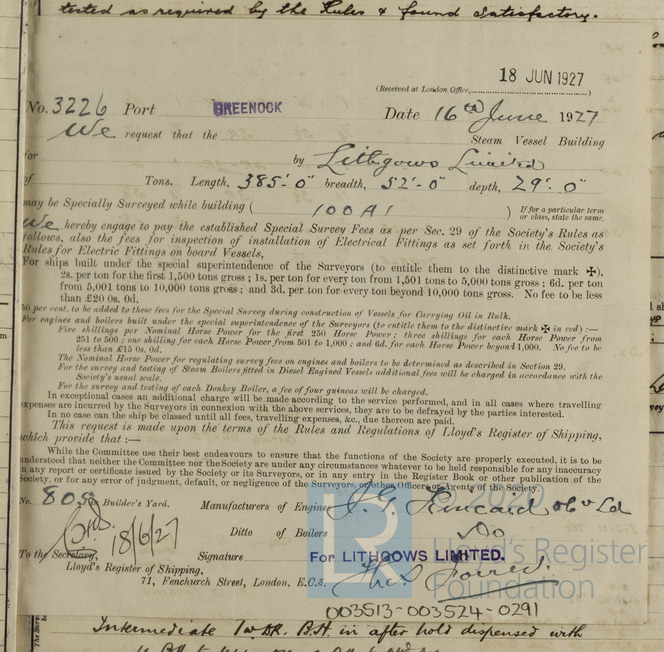 tested as required by the Rules & found satisfactory.
18 JUN 1927
(Received at London Office,..................)
No. 3226 Port GREENOCK Date 16th June 1927
We request that the Steam Vessel Building
for by Lithgows Limited
of Tons. Length, 385'-0" breadth, 52'-0" depth, 29'-0"
may be Specially Surveyed while building ( 100A1 ) If for a particular term or class, state the same,
We hereby engage to pay the established Special Survey Fees as per Sec. 29 of the Society's Rules as
follows, also the fees for inspection of installation of Electrical Fittings as set forth in the Society's
Rules for Electric Fittings on board Vessels,
For ships built under the special superintendence of the Surveyors (to entitle them to the distinctive mark ✠),
2s. per ton for the first 1,500 tons gross; 1s. per ton for every ton from 1,501 tons to 5,000 tons gross; 6d. per ton
from 5,001 tons to 10,000 tons gross; and 3d. per ton for every ton beyond 10,000 tons gross. No fee to be less
than £20 0s. 0d.
50 per cent. to be added to these fees for the Special Survey during construction of Vessels for Carrying Oil in Bulk.
For engines and boilers built under the special superintendence of the Surveyors (to entitle them to the distinctive mark ✠ in red) :—
Five shillings per Nominal Horse Power for the first 250 Horse Power; three shillings for each Horse Power from
251 to 500; one shilling for each Horse from 501 to 1,000; and 6d. for each Horse Power beyond 1,000. No fee to be
less than £15 0s. 0d.
The Nominal Horse Power for regulating survey fees on engines and boilers to be determined as described in Section 29.
For the survey and testing of Steam Boilers fitted in Diesel Engined Vessels additional fees will be charged in accordance with the
Society's usual scale.
For the survey and testing of each Donkey Boiler, a fee of four guineas will be charged.
In exceptional cases an additional charge will be made according to the service performed, and in all cases where travelling
expenses are incurred by the Surveyors in connection with the above services, they are to be defrayed by the parties interested.
In no case can the ship be classed until all fees, travelling expenses, &c., due thereon are paid.
This request is made upon the terms of the Rules and Regulations of Lloyd's Register of Shipping,
which provide that :—
While the Committee use their best endeavours to ensure that the functions of the Society are properly executed, it is to be
understood that neither the Committee nor the Society are under any circumstances whatever to be held responsible for any inaccuracy
in any report or certificate issued by the Society or its Surveyors, or in any entry in the Register Book or other publication of the
Society, or for any error of judgment, default, or negligence of the Surveyors, or other Officers or Agents of the Society.
No. 805 Builder's Yard. Manufacturers of Engines J. G. Kincaid & Co Ld
18/6/27 Ditto of Boilers Do
To the Secretary, Signature FOR LITHGOWS LIMITED.
Lloyd's Register of Shipping,
71, Fenchurch Street, London, E.C.3.
© 2020
Lloyd's Register
Foundation
003513-003524-0291
Intermediate Tw. Dk. B.H. in after hold dispensed with